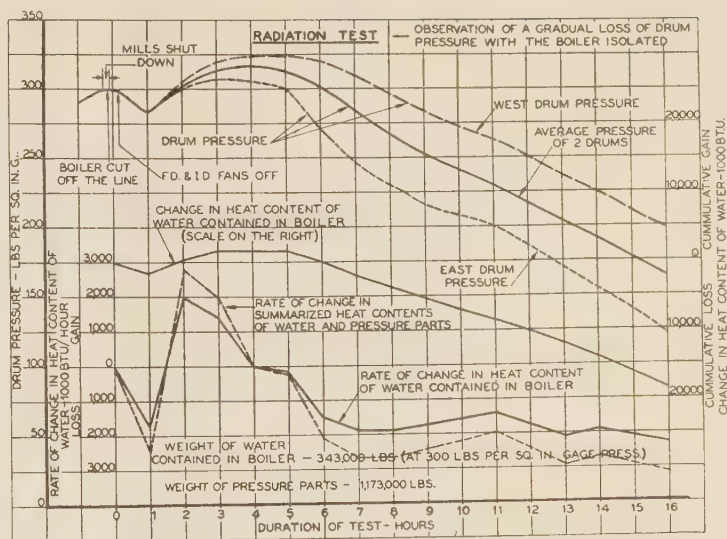 RADIATION TEST — OBSERVATION OF A GRADUAL LOSS OF DRUM
PRESSURE WITH THE BOILER ISOLATED
MILLS SHUT
DOWN
WEST DRUM PRESSURE
DRUM PRESSURE
AVERAGE PRESSURE
OF 2 DRUMS
BOILER CUT
OFF THE LINE
F.D. & I D FANS OFF
CHANGE IN HEAT CONTENT OF
WATER CONTAINED IN BOILER
(SCALE ON THE RIGHT)
EAST DRUM
PRESSURE
RATE OF CHANGE IN
SUMMARIZED HEAT CONTENTS
OF WATER AND PRESSURE PARTS
RATE OF CHANGE IN HEAT CONTENT
OF WATER CONTAINED IN BOILER
WEIGHT OF WATER
CONTAINED IN BOILER — 343,000 LBS (AT 300 LBS PER SQ. IN. GAGE PRESS.)
WEIGHT OF PRESSURE PARTS - 1,173,000 LBS.
350
300
250
200
150
100
50
0
DRUM PRESSURE - LBS PER SQ. IN. G.
3,000
2000
1000
0
1000
2000
3000
RATE OF CHANGE IN HEAT CONTENT OF
WATER-1000 BTU/HOUR
LOSS GAIN
20,000
10,000
0
10,000
20000
CUMMULATIVE LOSS CUMMULATIVE GAIN
CHANGE IN HEAT CONTENT OF WATER-1000 BTU.
0 1 2 3 4 5 6 7 8 9 10 11 12 13 14 15 16
DURATION OF TEST-HOURS